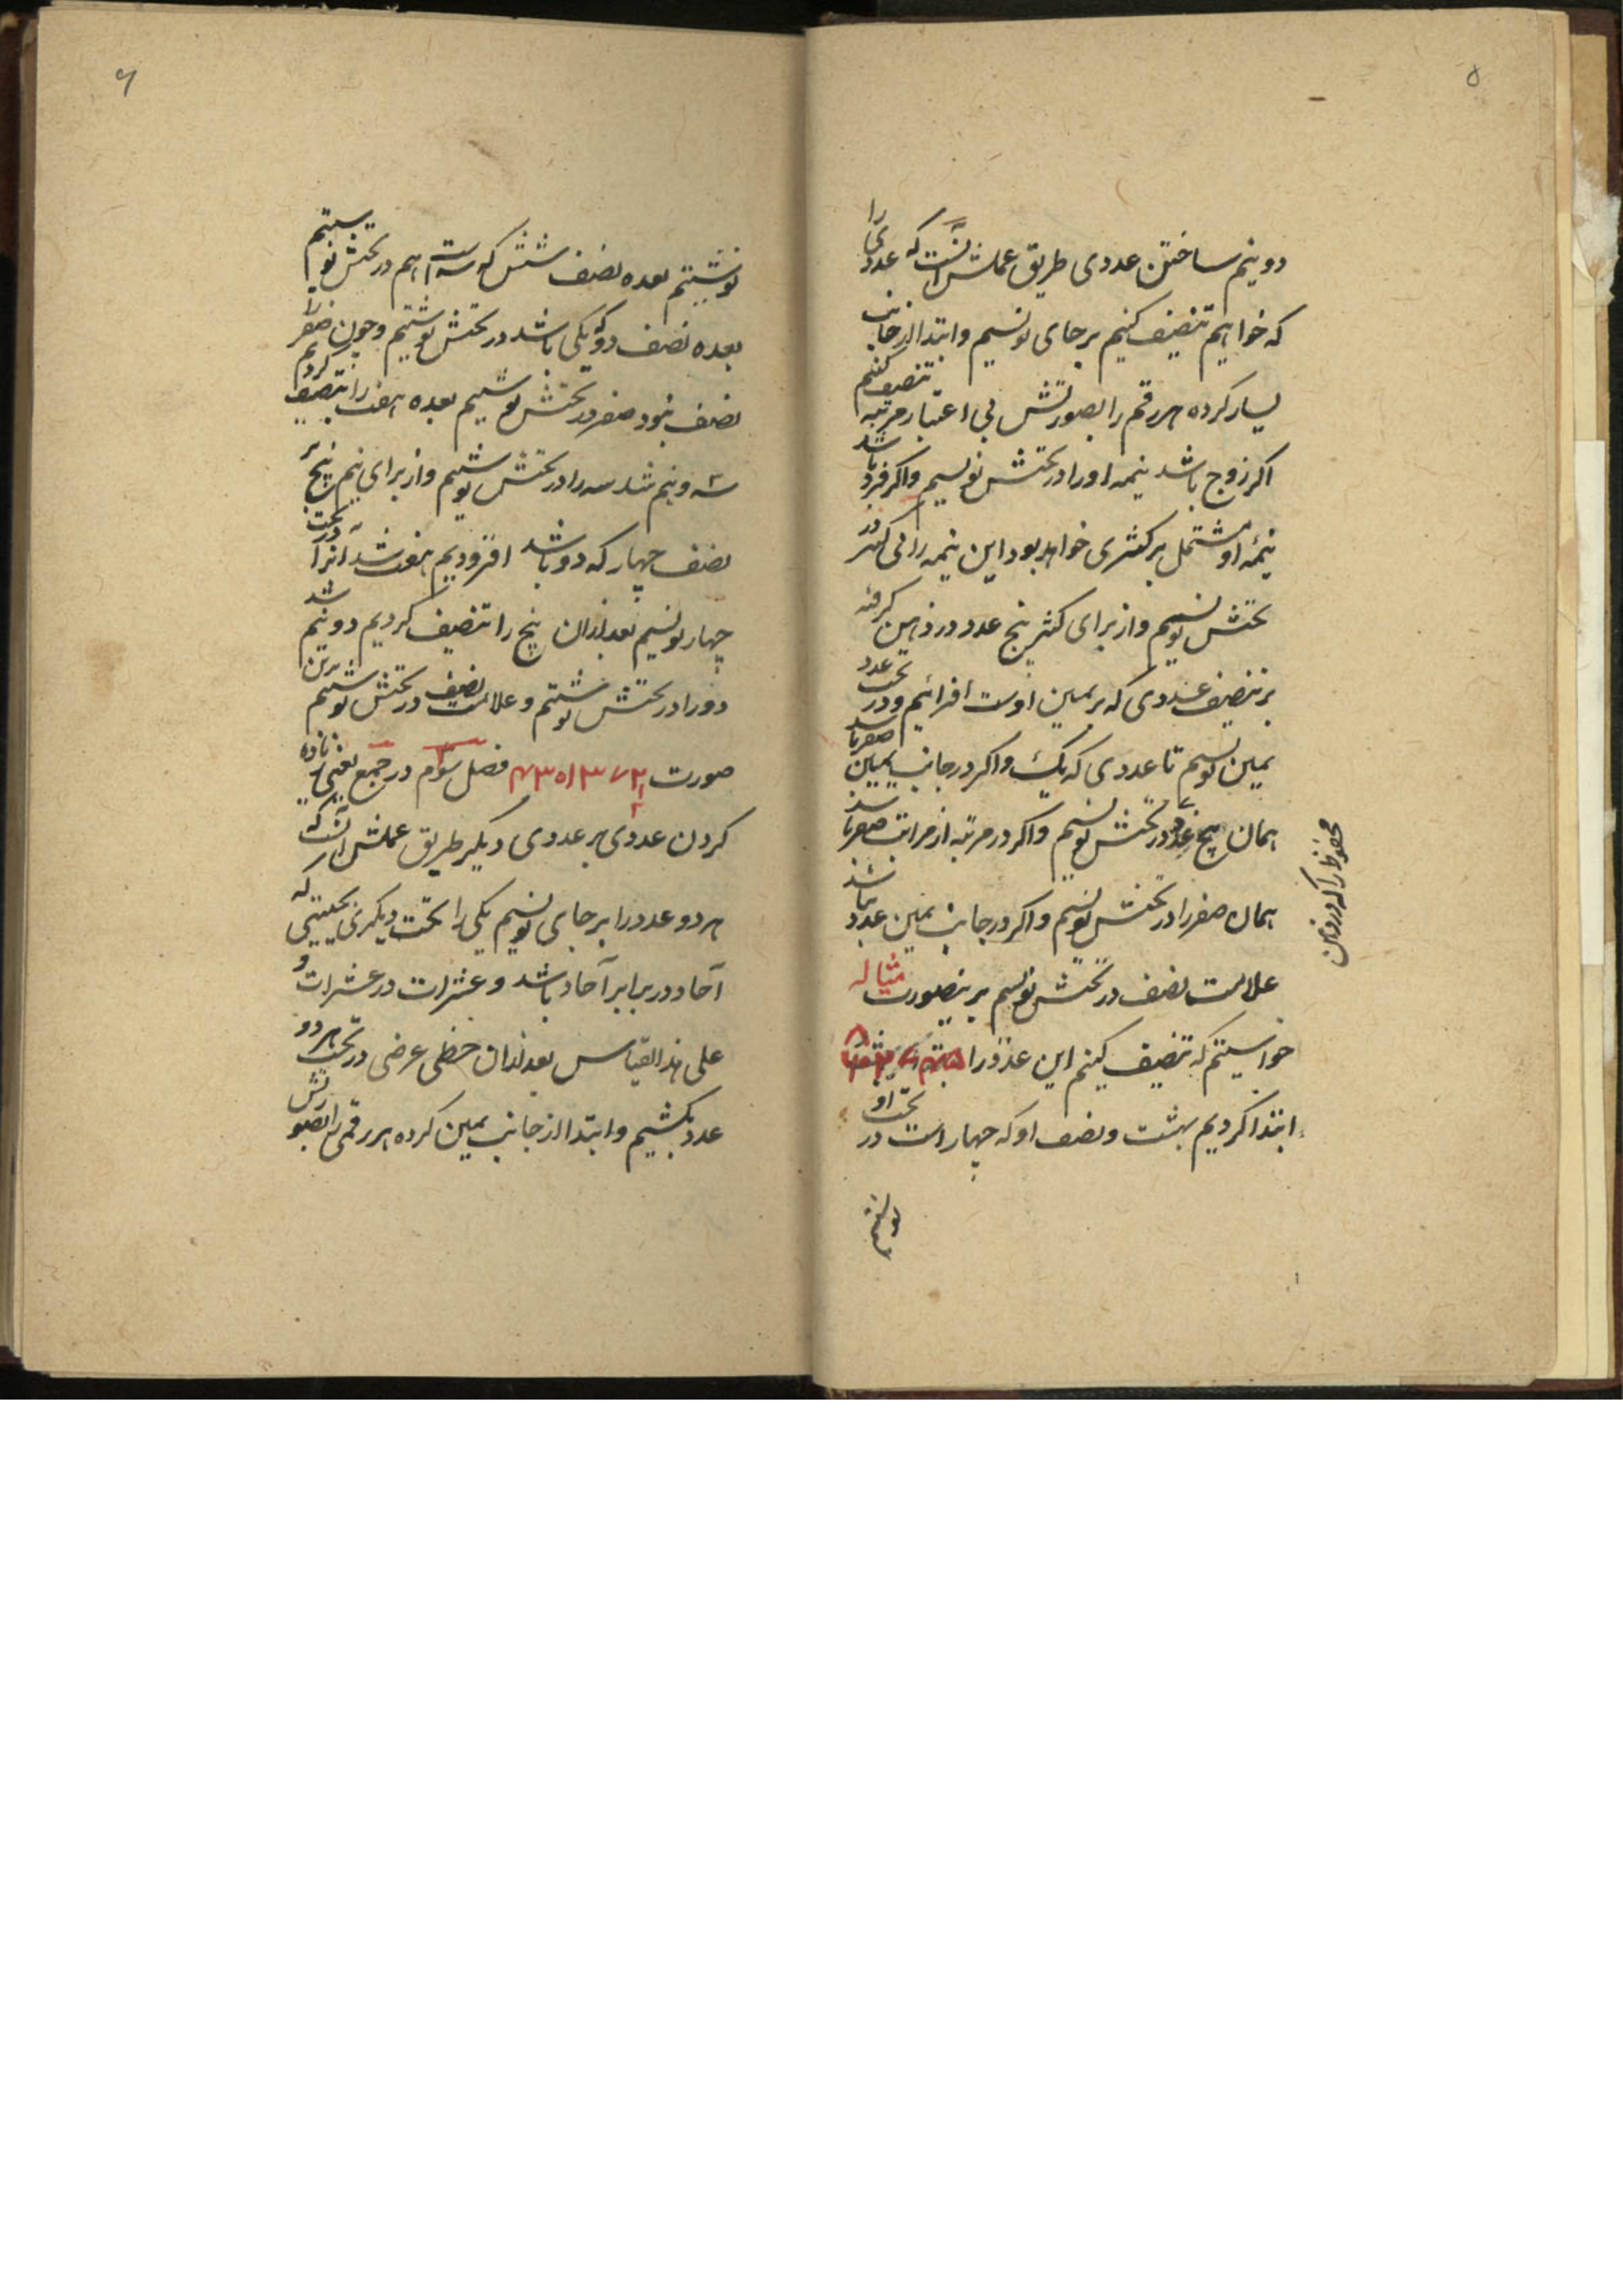 ۵
دو نیم ساختن عددی طریق عملش آنست که عددی را
که خواهیم تنصیف کنیم بر جای نویسیم و ابتدا از جانب
یسار کرده هر رقم را بصورتش بی اعتبار مرتبه تنصیف کنیم
اکر زوج باشد نیمه او را در تحتش نویسیم و اکر فرد باشد
نیمهٔ او مشتمل بر کسری خواهد بود این نیمه را بی کسر در
تحتش نویسیم و از برای کسر پنج عدد در ذهن کرفته
بر تنصیف عددی که بر یمین اوست افزائیم و در تحت عدد
یمین نویسیم تا عددی که یک و اکر در جانب یمین صفر باشد
همان پنج عدد در تحتش نویسیم و اکر در مرتبه از مراتب صفر باشد
همان صفر را در تحتش نویسیم و اکر در جانب یمین عدد باشد
علامت نصف در تحتش نویسیم برینصورت مثاله
خواستیم که تنصیف کنیم این عدد را
ابتدا کردیم بهشت و نصف او که چهار است در تحت او
نوشتیم
محفوظ را که در ذهن
۶
نوشتیم بعده نصف شش که سه است هم در تحتش نوشتیم
بعده نصف دو که یکی باشد در تحتش نوشتیم و چون صفر را
نصف نبود صفر در تحتش نوشتیم بعده هفت را تنصیف کردیم
سه و نیم شد سه را در تحتش نوشتیم و از برای نیم پنج بر
نصف چهار که دو باشد افزودیم هفت شد آنرا در تحت
چهار نویسیم بعد ازان پنج را تنصیف کردیم دو نیم شد
دو را در تحتش نوشتیم و علامت نصف در تحتش نوشتیم برین
صورت فصل سوم در جمع یعنی زیاده
کردن عددی بر عددی دیکر طریق عملش آنست که
هر دو عدد را بر جای نویسیم یکی را تحت دیکری بحیثیتی که
آحاد در برابر آحاد باشد و عشرات در عشرات و
علی هذا القیاس بعد ازان خطی عرضی در تحت هر دو
عدد بکشیم و ابتدا از جانب یمین کرده هر رقمی را بصورتش